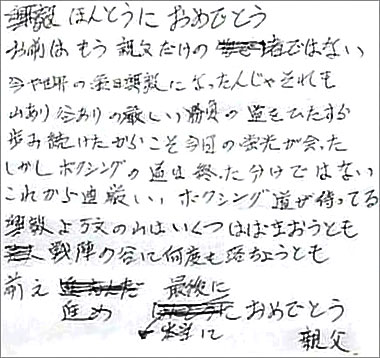 興毅 ほんとうに おめでとう
お前は もう 親父だけの 者ではない
今や世界の亀田興毅に なったんじゃ それも
山あり 谷ありの厳しい 勝負の 道をひたすら
歩み続けたからこそ 今日の 栄光が会った
しかし ボクシングの 道は 終った分けではない
これから直厳しい ボクシング道が待ってる
興毅よ 万丈の山は いくつ はば立おうとも
戦陣の谷に何度も 落ちようとも
前え 最後に
進め おめでとう
本当に 親父